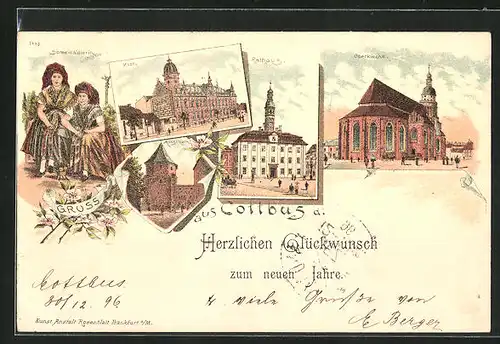 Post.
Rathaus.
Oberkirche.
GRUSS
aus Cottbus a.
Herzlichen Glückwunsch
zum neuen Jahre.
Cottbus
30/12. 96
& viele Grüsse von
E. Berger
Kunst. Anstalt Rosenblatt Frankfurt a/M.